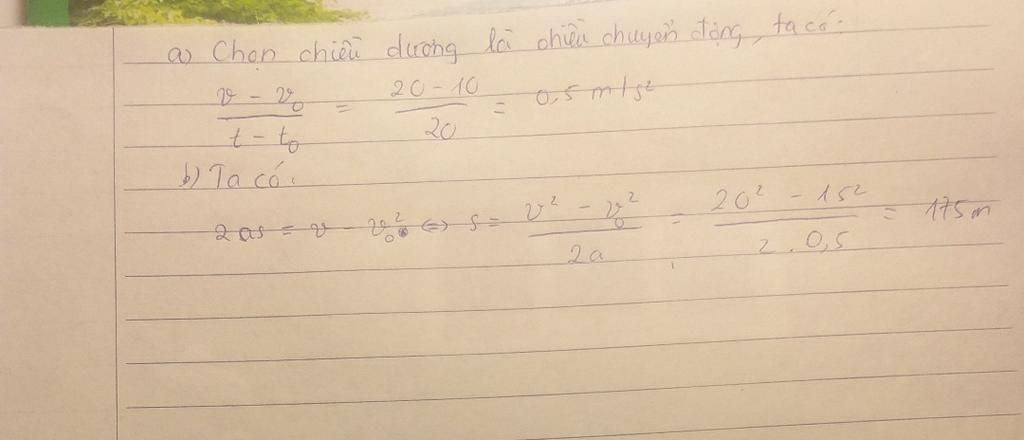 a) Chọn chiều dương là chiều chuyển động, ta có:
v - v₀ / t - t₀ = 20 - 10 / 20 = 0,5 m/s²
b) Ta có:
2as = v - v₀² ⇔ s = v² - v₀² / 2a = 20² - 15² / 2 . 0,5 = 175m